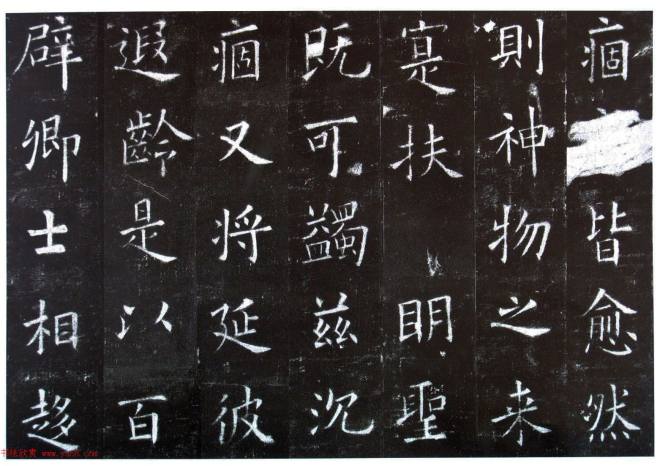 痼□皆愈然
則神物之来
寔扶明聖
既可蠲兹沉
痼又将延彼
遐齡是以百
辟卿士相趍
书法欣赏 www.yac8.com